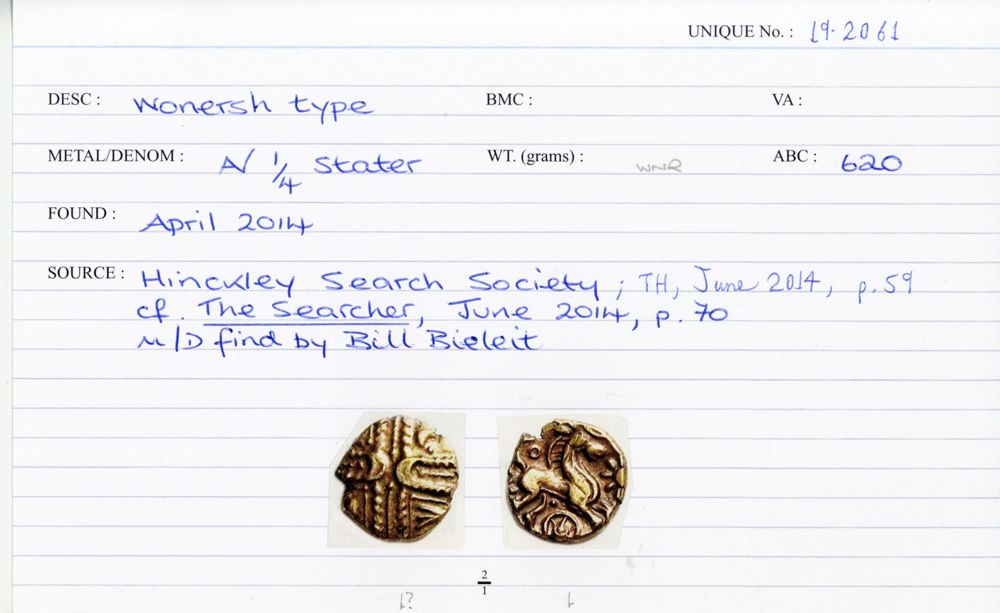 UNIQUE No. : 19.2061
DESC : Wonersh type BMC : VA :
METAL/DENOM : A/ 1/4 Stater WT. (grams) : WNR ABC : 620
FOUND : April 2014
SOURCE : Hinckley Search Society ; TH, June 2014, p. 59
cf. The Searcher, June 2014, p. 70
M/D find by Bill Bieleit
2
1
1? 1